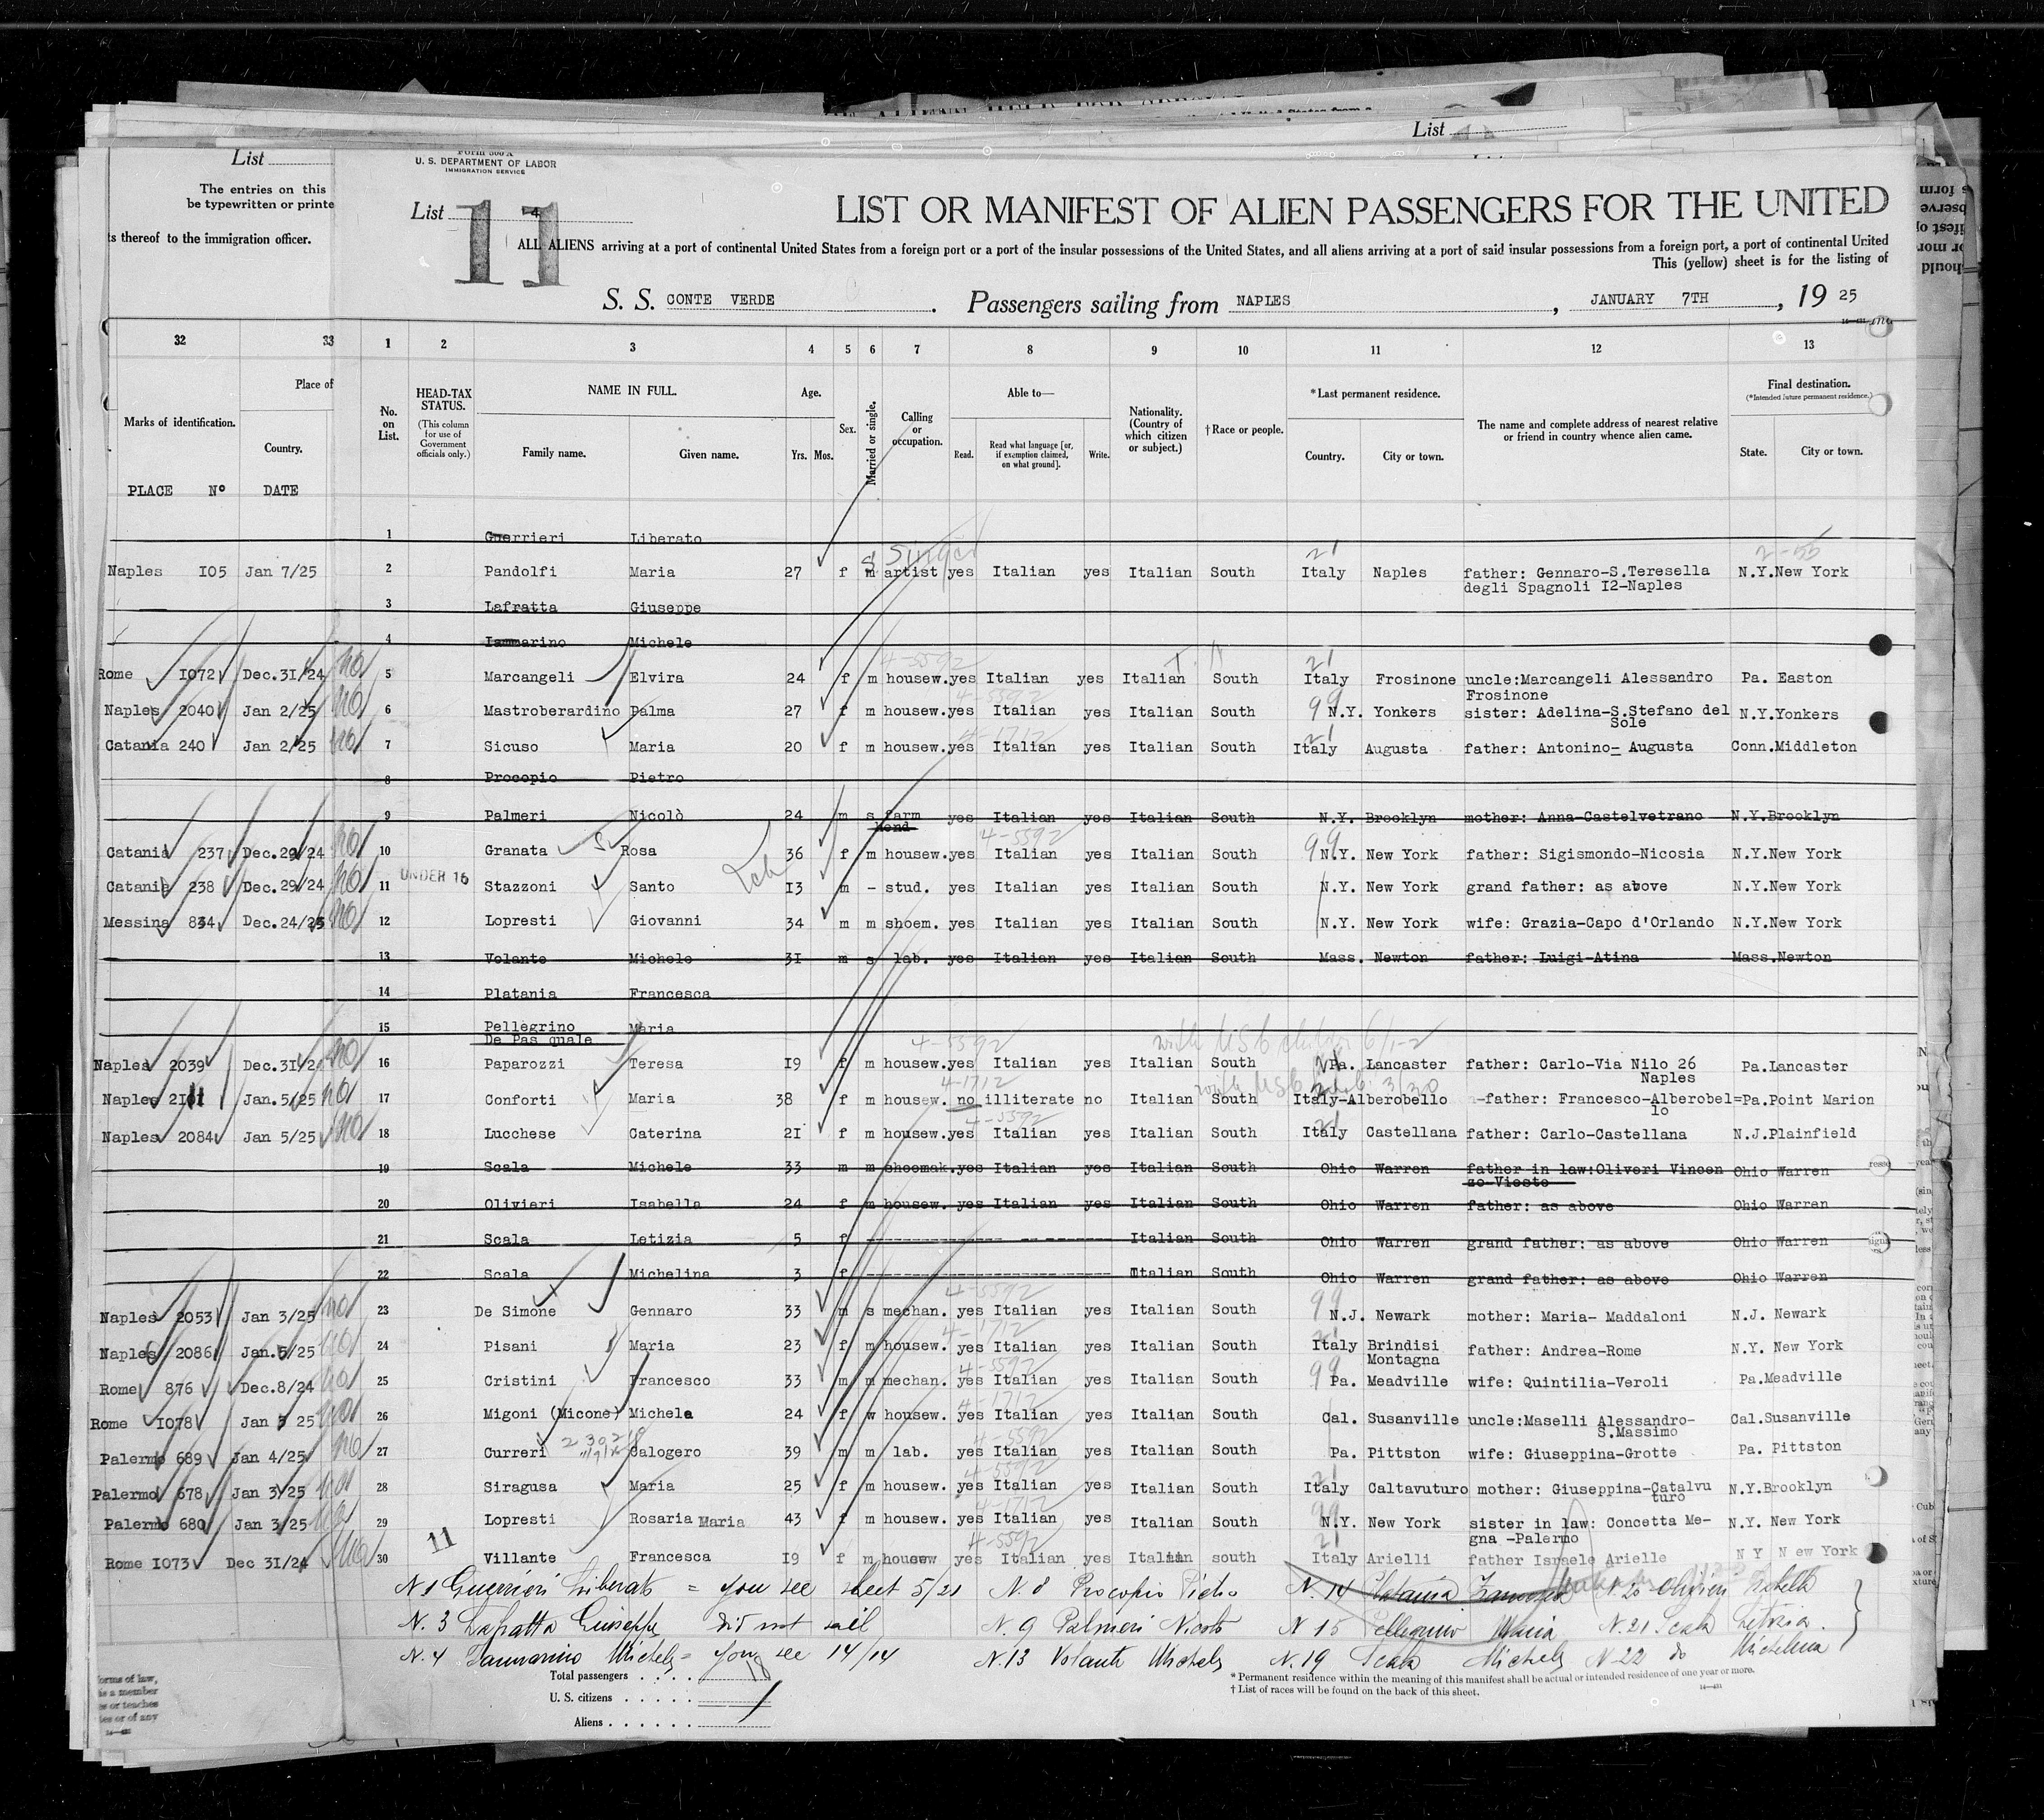 List
List
The entries on this
be typewritten or printe
ts thereof to the immigration officer.
U. S. DEPARTMENT OF LABOR
IMMIGRATION SERVICE
List 4
11
LIST OR MANIFEST OF ALIEN PASSENGERS FOR THE UNITED
ALL ALIENS arriving at a port of continental United States from a foreign port or a port of the insular possessions of the United States, and all aliens arriving at a port of said insular possessions from a foreign port, a port of continental United
This (yellow) sheet is for the listing of
S. S. CONTE VERDE . Passengers sailing from NAPLES , JANUARY 7TH , 19 25
32 33 1 2 3 4 5 6 7 8 9 10 11 12 13
Marks of identification. Place of Country. No. on List. HEAD-TAX STATUS. (This column for use of Government officials only.) NAME IN FULL. Family name. Given name. Age. Yrs. Mos. Sex. Married or single. Calling or occupation. Able to— Read. Read what language [or, if exemption claimed, on what ground]. Write. Nationality. (Country of which citizen or subject.) †Race or people. *Last permanent residence. Country. City or town. The name and complete address of nearest relative or friend in country whence alien came. Final destination. (*Intended future permanent residence.) State. City or town.
PLACE Nº DATE
1 Guerrieri Liberato
singer 21 2-55
Naples 105 Jan 7/25 2 Pandolfi Maria 27 f m s artist yes Italian yes Italian South Italy Naples father: Gennaro-S.Teresella N.Y. New York
degli Spagnoli I2-Naples
3 Lafratta Giuseppe
4 Iammarino Michele
4-5592 21
Rome 1072 Dec.31/24 5 Marcangeli Elvira 24 f m housew. yes Italian yes Italian South Italy Frosinone uncle:Marcangeli Alessandro Pa. Easton
Frosinone
4-5592 99
Naples 2040 Jan 2/25 6 Mastroberardino Palma 27 f m housew. yes Italian yes Italian South N.Y. Yonkers sister: Adelina-S.Stefano del N.Y. Yonkers
Sole
4-1712 21
Catania 240 Jan 2/25 7 Sicuso Maria 20 f m housew. yes Italian yes Italian South Italy Augusta father: Antonino- Augusta Conn. Middleton
8 Procopio Pietro
9 Palmeri Nicolò 24 m s farm yes Italian yes Italian South N.Y. Brooklyn mother: Anna-Castelvetrano N.Y. Brooklyn
hend
4-5592 99
Catania 237 Dec.29/24 10 Granata Rosa 36 f m housew. yes Italian yes Italian South N.Y. New York father: Sigismondo-Nicosia N.Y. New York
Catania 238 Dec.29/24 11 UNDER 16 Stazzoni Santo I3 m - stud. yes Italian yes Italian South N.Y. New York grand father: as above N.Y. New York
Messina 834 Dec.24/25 12 Lopresti Giovanni 34 m m shoem. yes Italian yes Italian South N.Y. New York wife: Grazia-Capo d'Orlando N.Y. New York
13 Volante Michele 3I m s lab. yes Italian yes Italian South Mass. Newton father: Luigi-Atina Mass. Newton
14 Platania Francesca
15 Pellegrino Maria
De Pas quale
4-5592
Naples 2039 Dec.31/24 16 Paparozzi Teresa I9 f m housew. yes Italian yes Italian South Pa. Lancaster father: Carlo-Via Nilo 26 Pa. Lancaster
Naples
4-1712
Naples Jan.5/25 17 Conforti Maria 38 f m housew. no illiterate no Italian South Italy-Alberobello father: Francesco-Alberobel= Pa. Point Marion
lo
4-5592 21
Naples 2084 Jan 5/25 18 Lucchese Caterina 2I f m housew. yes Italian yes Italian South Italy Castellana father: Carlo-Castellana N.J. Plainfield
19 Scala Michele 33 m m shoemak. yes Italian yes Italian South Ohio Warren father in law:Oliveri Vincen Ohio Warren
zo-Vieste
20 Olivieri Isabella 24 f m housew. yes Italian yes Italian South Ohio Warren father: as above Ohio Warren
21 Scala Letizia 5 f Italian South Ohio Warren grand father: as above Ohio Warren
22 Scala Michelina 3 f Italian South Ohio Warren grand father: as above Ohio Warren
4-5592 99
Naples 2053 Jan 3/25 23 De Simone Gennaro 33 m s mechan. yes Italian yes Italian South N.J. Newark mother: Maria- Maddaloni N.J. Newark
4-1712 21
Naples 2086 Jan.5/25 24 Pisani Maria 23 f m housew. yes Italian yes Italian South Italy Brindisi father: Andrea-Rome N.Y. New York
Montagna
4-5592 99
Rome 876 Dec.8/24 25 Cristini Francesco 33 m m mechan. yes Italian yes Italian South Pa. Meadville wife: Quintilia-Veroli Pa. Meadville
4-1712
Rome 1078 Jan 3 25 26 Migoni (Micone) Michela 24 f w housew. yes Italian yes Italian South Cal. Susanville uncle:Maselli Alessandro- Cal. Susanville
S.Massimo
4-5592
Palermo 689 Jan 4/25 27 Curreri Calogero 39 m m lab. yes Italian yes Italian South Pa. Pittston wife: Giuseppina-Grotte Pa. Pittston
4-5592 21
Palermo 678 Jan 3/25 28 Siragusa Maria 25 f m housew. yes Italian yes Italian South Italy Caltavuturo mother: Giuseppina-Catalvu N.Y. Brooklyn
turo
4-1712 99
Palermo 680 Jan 3/25 29 Lopresti Rosaria Maria 43 f m housew. yes Italian yes Italian South N.Y. New York sister in law: Concetta Me- N.Y. New York
gna -Palermo
4-5592 21
Rome I073 Dec 31/24 30 11 Villante Francesca I9 f m housew yes Italian yes Italian south Italy Arielli father Israele Arielle N Y New York
N 1 Guerrieri Liberato = you see sheet 5/21 N. 8 Procopio Pietro N. 14 Platania Francesca N. 20 Olivieri Isabella
N. 3 Lafratta Giuseppe did not sail N. 9 Palmeri Nicolò N 15 Pellegrino Maria N. 21 Scala Letizia
N. 4 Iammarino Michele = you see 14/14 N. 13 Volante Michele N. 19 Scala Michele N 22 do Michelina
Total passengers . . . . 18
U. S. citizens . . . . .
Aliens . . . . . .
* Permanent residence within the meaning of this manifest shall be actual or intended residence of one year or more.
† List of races will be found on the back of this sheet.
orms of law,
is a member
es or teaches
tes or of any